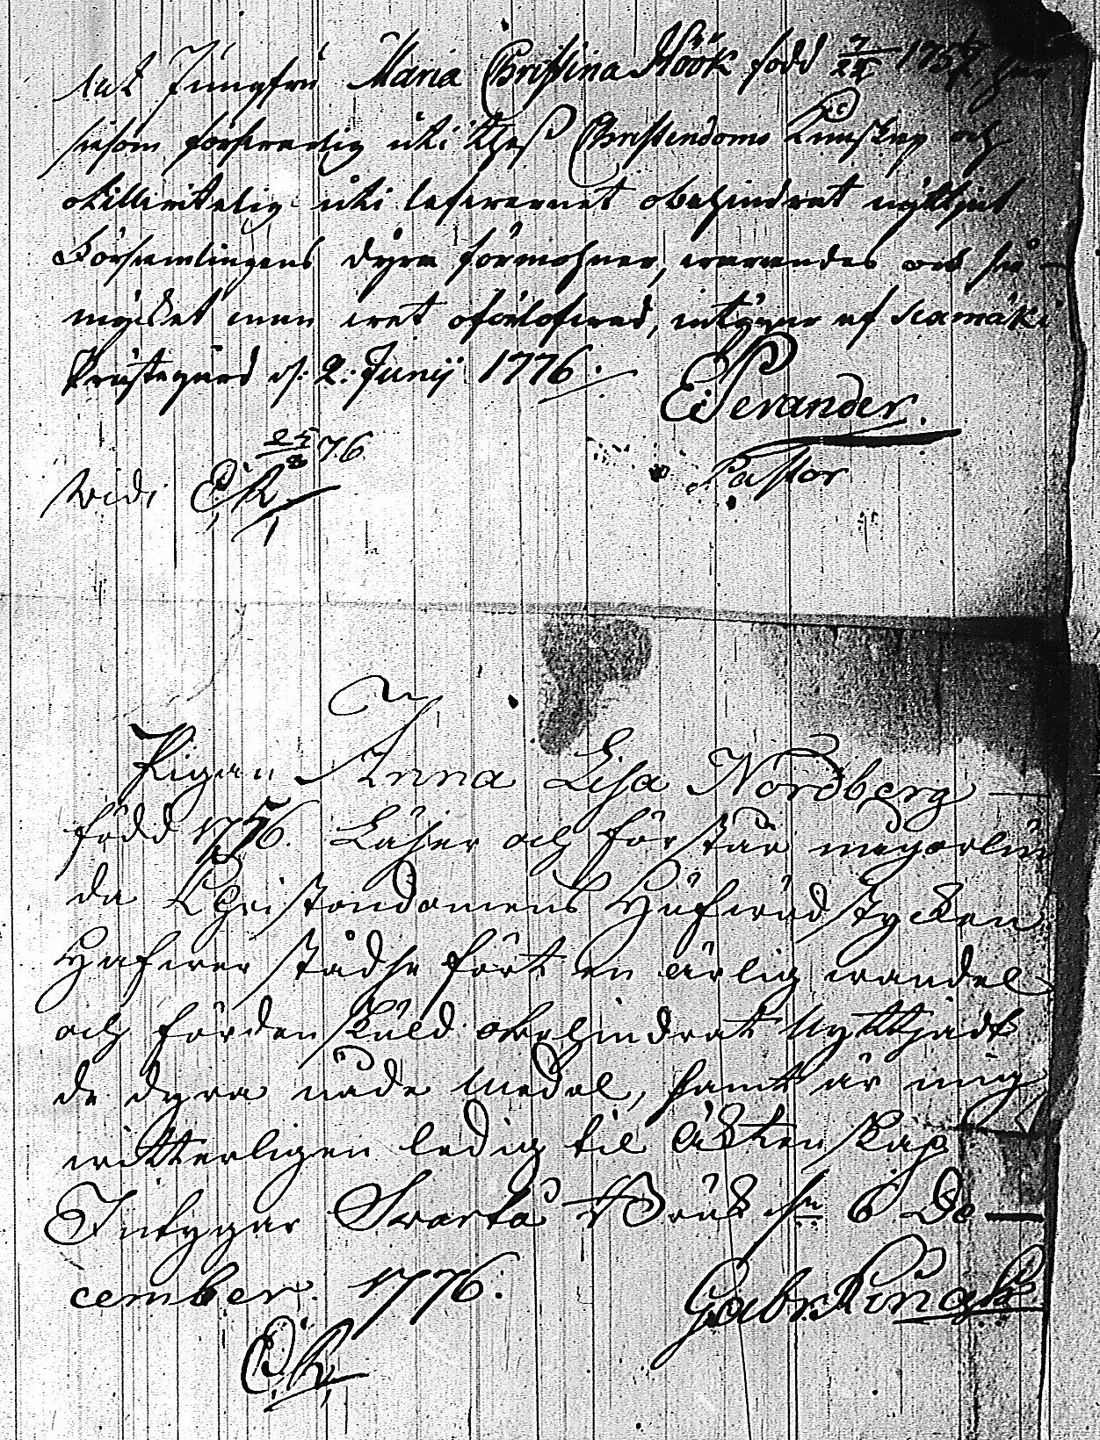 Att Jungfru Maria Christina Höök född 7/22 1757 har
såsom försvarlig uti thess Christendoms Kunskap och
otillvitelig uti lefvernet obehindrat nyttjat
Församlingens dyra förmohner, warandes ock så
mycket man wet oförlofwad, intygar af
Prästegård d: 2: Junij 1776.
E: Perander.
Pastor
25/8 76
vidi E.R.
Pigan Anna Lisa Nordberg
född 1756. Läser och förstår någorlun
da Christendomens Hufwudstycken
Hafwer städse fört en ärlig wandel
och fördenskuld obehindrat Nyttjadt
de dyra nåde medel, samt är mig
witterligen ledig til Äktenskap
Intygar Svartå Bruk d 6 De
cember. 1776.
Gabr:
E.R.